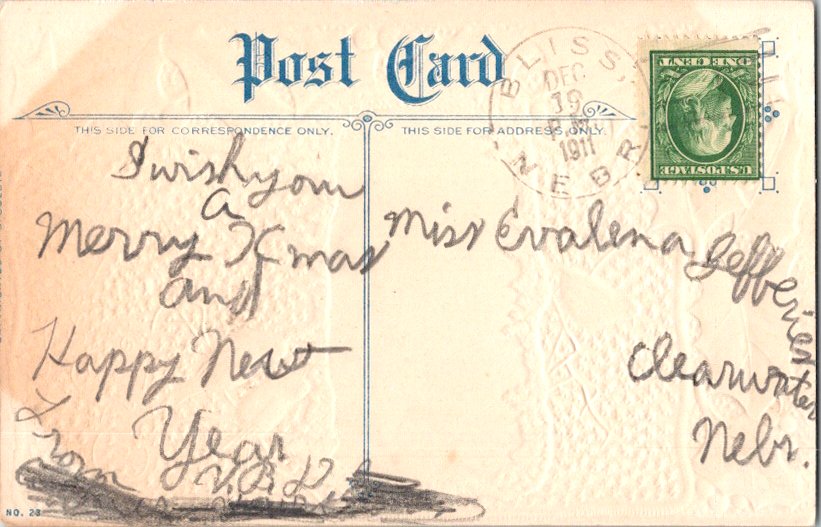 Post Card
THIS SIDE FOR CORRESPONDENCE ONLY.
THIS SIDE FOR ADDRESS ONLY.
BLISS,
DEC
19
P.M.
1911
NEBR.
U.S. POSTAGE
ONE CENT
I wish you
a
Merry Xmas
and
Happy New
Year
From
Miss Evalena Jefferies
Clearwater
Nebr.
NO. 28